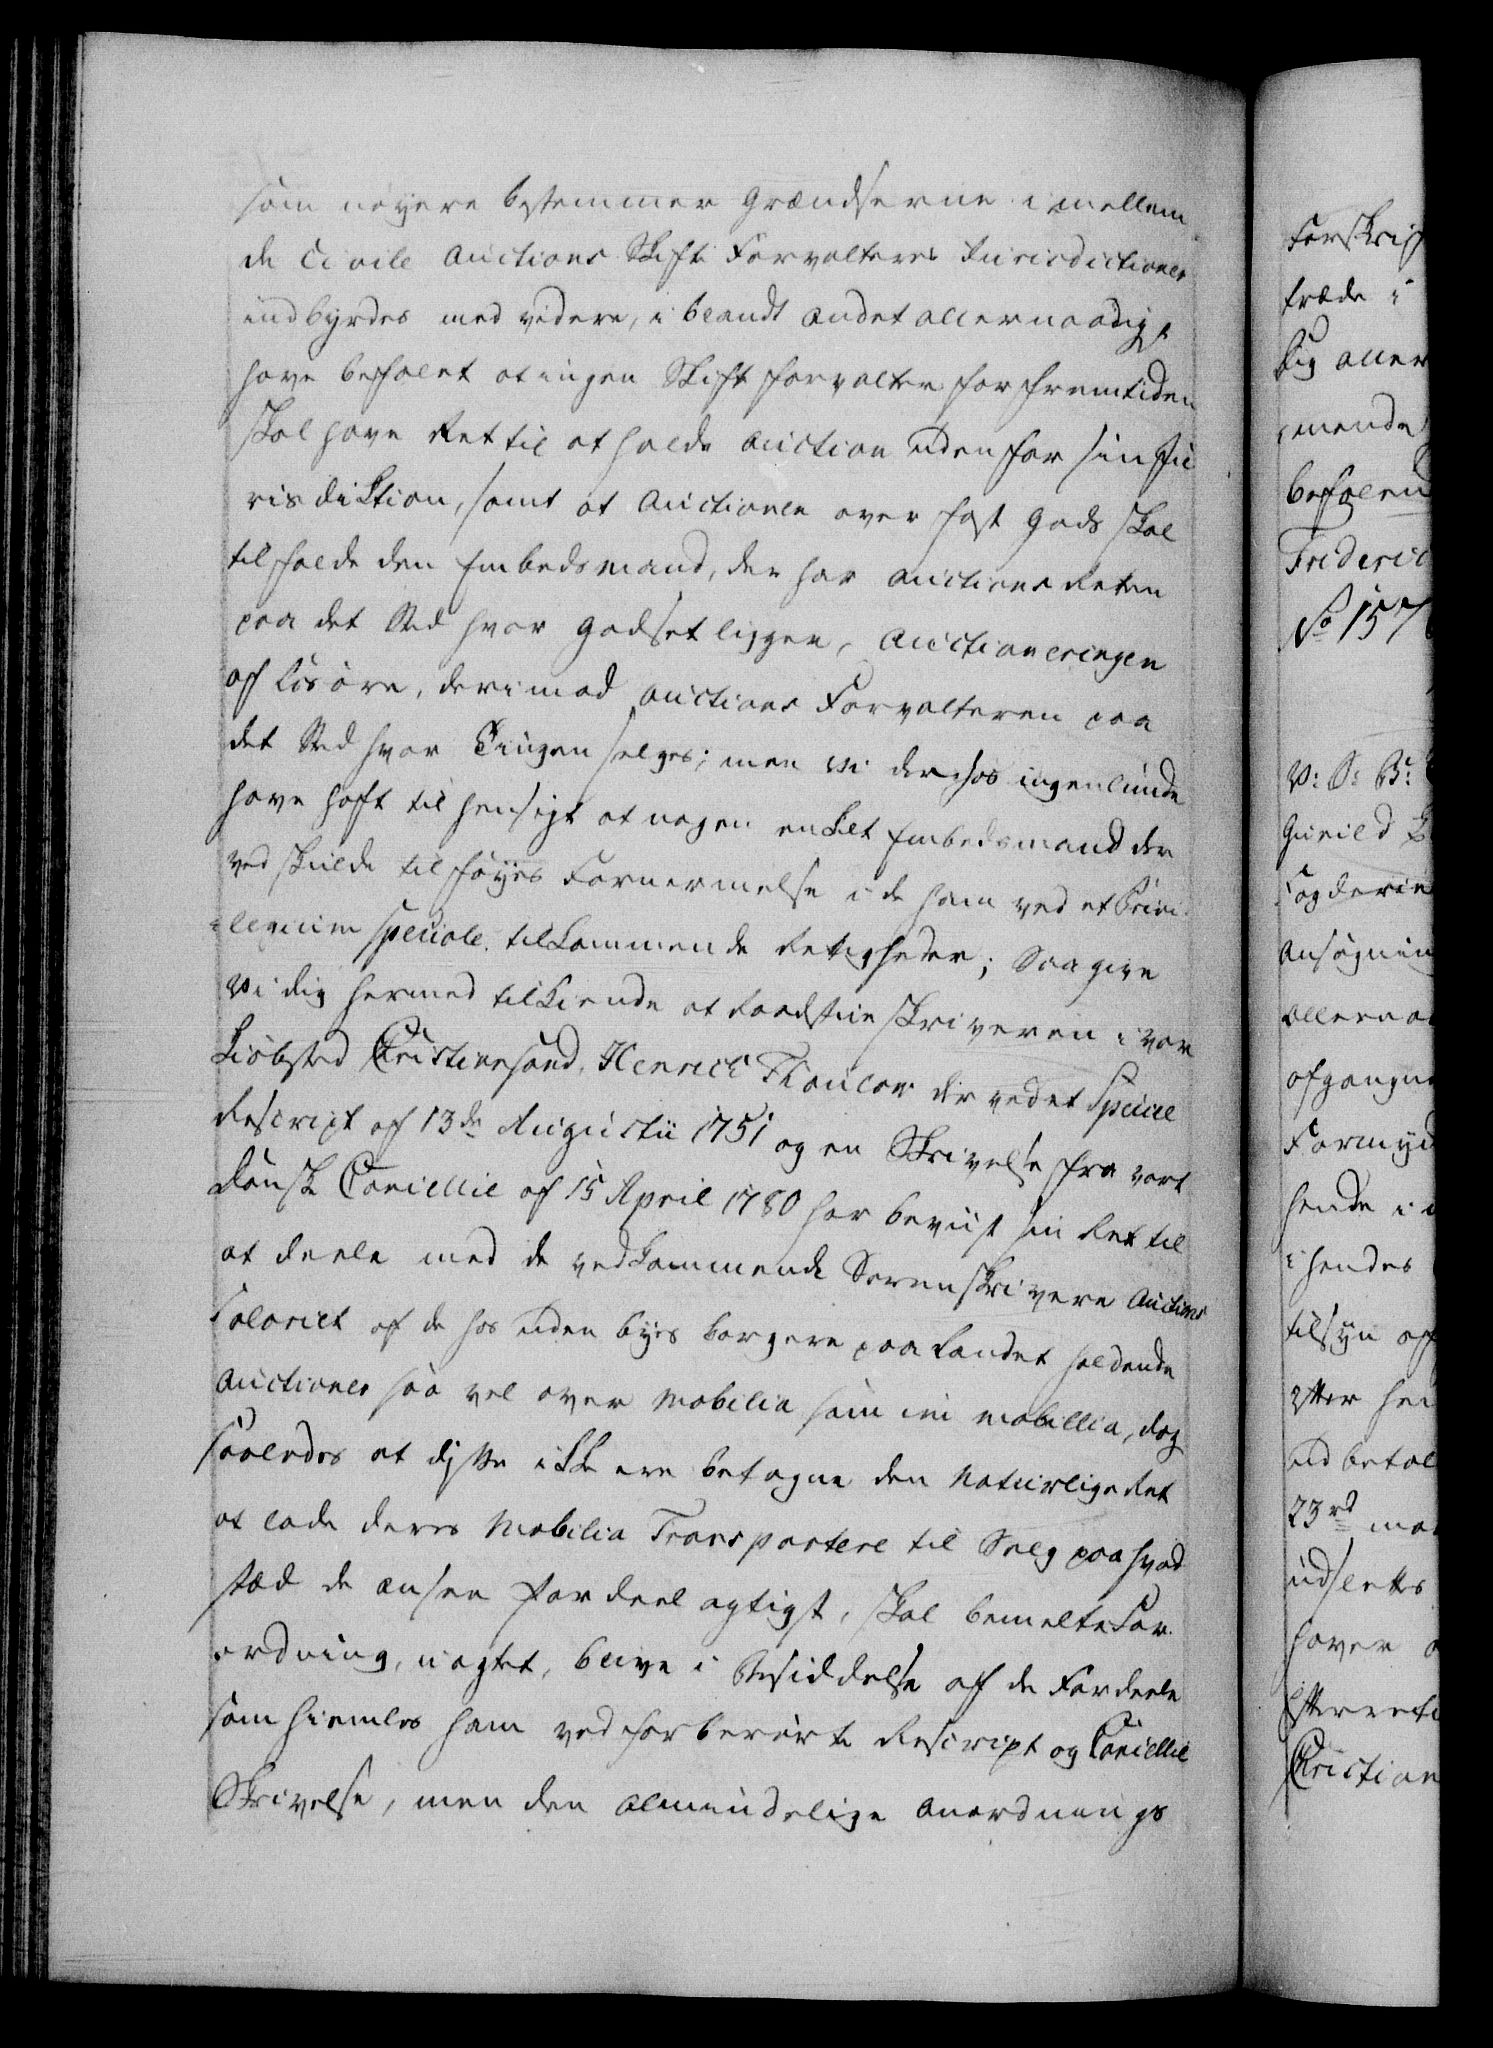 som nøyere bestemmer Grændserne imellem
de Civile Auctions Skifte Forvalteres Jurisdictioner
indbyrdes med videre, i blandt andet allernaadigst
have befalet at ingen Skifteforvalter for Fremtiden
skal have Ret til at holde Auction uden for sin Ju
risdiktion, samt at Auctionen over fast Gods skal
tilfalde den Embedsmand, der har Auctions Retten
paa det Sted hvor Godset ligger, Auctioneringen
af Løsøre, derimod Auctions Forvalteren paa
det Sted hvor Tingen selges; men Vi derhos ingenlunde
have haft til Hensigt at nogen enkelt Embedsmand der
ved skulde tilføyes Fornermelse i de ham ved et Privi
legium speciale tilkommende Rettigheder; Saa give
Vi dig hermed tilkiende at Raadstueskriveren i vor
Kiøbsted Christiansand, Henrich Thaulow der ved et Speciel
Rescript af 13de Augustii 1751 og en Skrivelse fra vort
Danske Cancellie af 15 April 1780 har beviist sin Ret til
at deele med de vedkommende Sorenskrivere Auctions
Salariet af de hos uden byes borgere paa Landet holdende
Auctioner saa vel over Mobilia som im mobillia, dog
saaledes at disse ikke ere betagne den Naturlige Ret
at lade deres Mobilia Transportere til Salg paa hvad
stæd de ansee fordeelagtigst, skal bemelte For
ordning, uagtet, blive i Besiddelse af de Fordeele
som hiemles ham ved forberørte Rescript og Cancellie
Skrivelse, men den almindelige Anordnings
Forskrif
træde i
Dig aller
mende
befalend
Frideric
No 157
V: S: B:
Gunild
Fogderie
Ansøgning
allerna
afgangne
Formyn
hende i
i hendes
tilsyn af
efter hen
udbetal
23rd ma
udsettes
haver
Efterrett
Christian